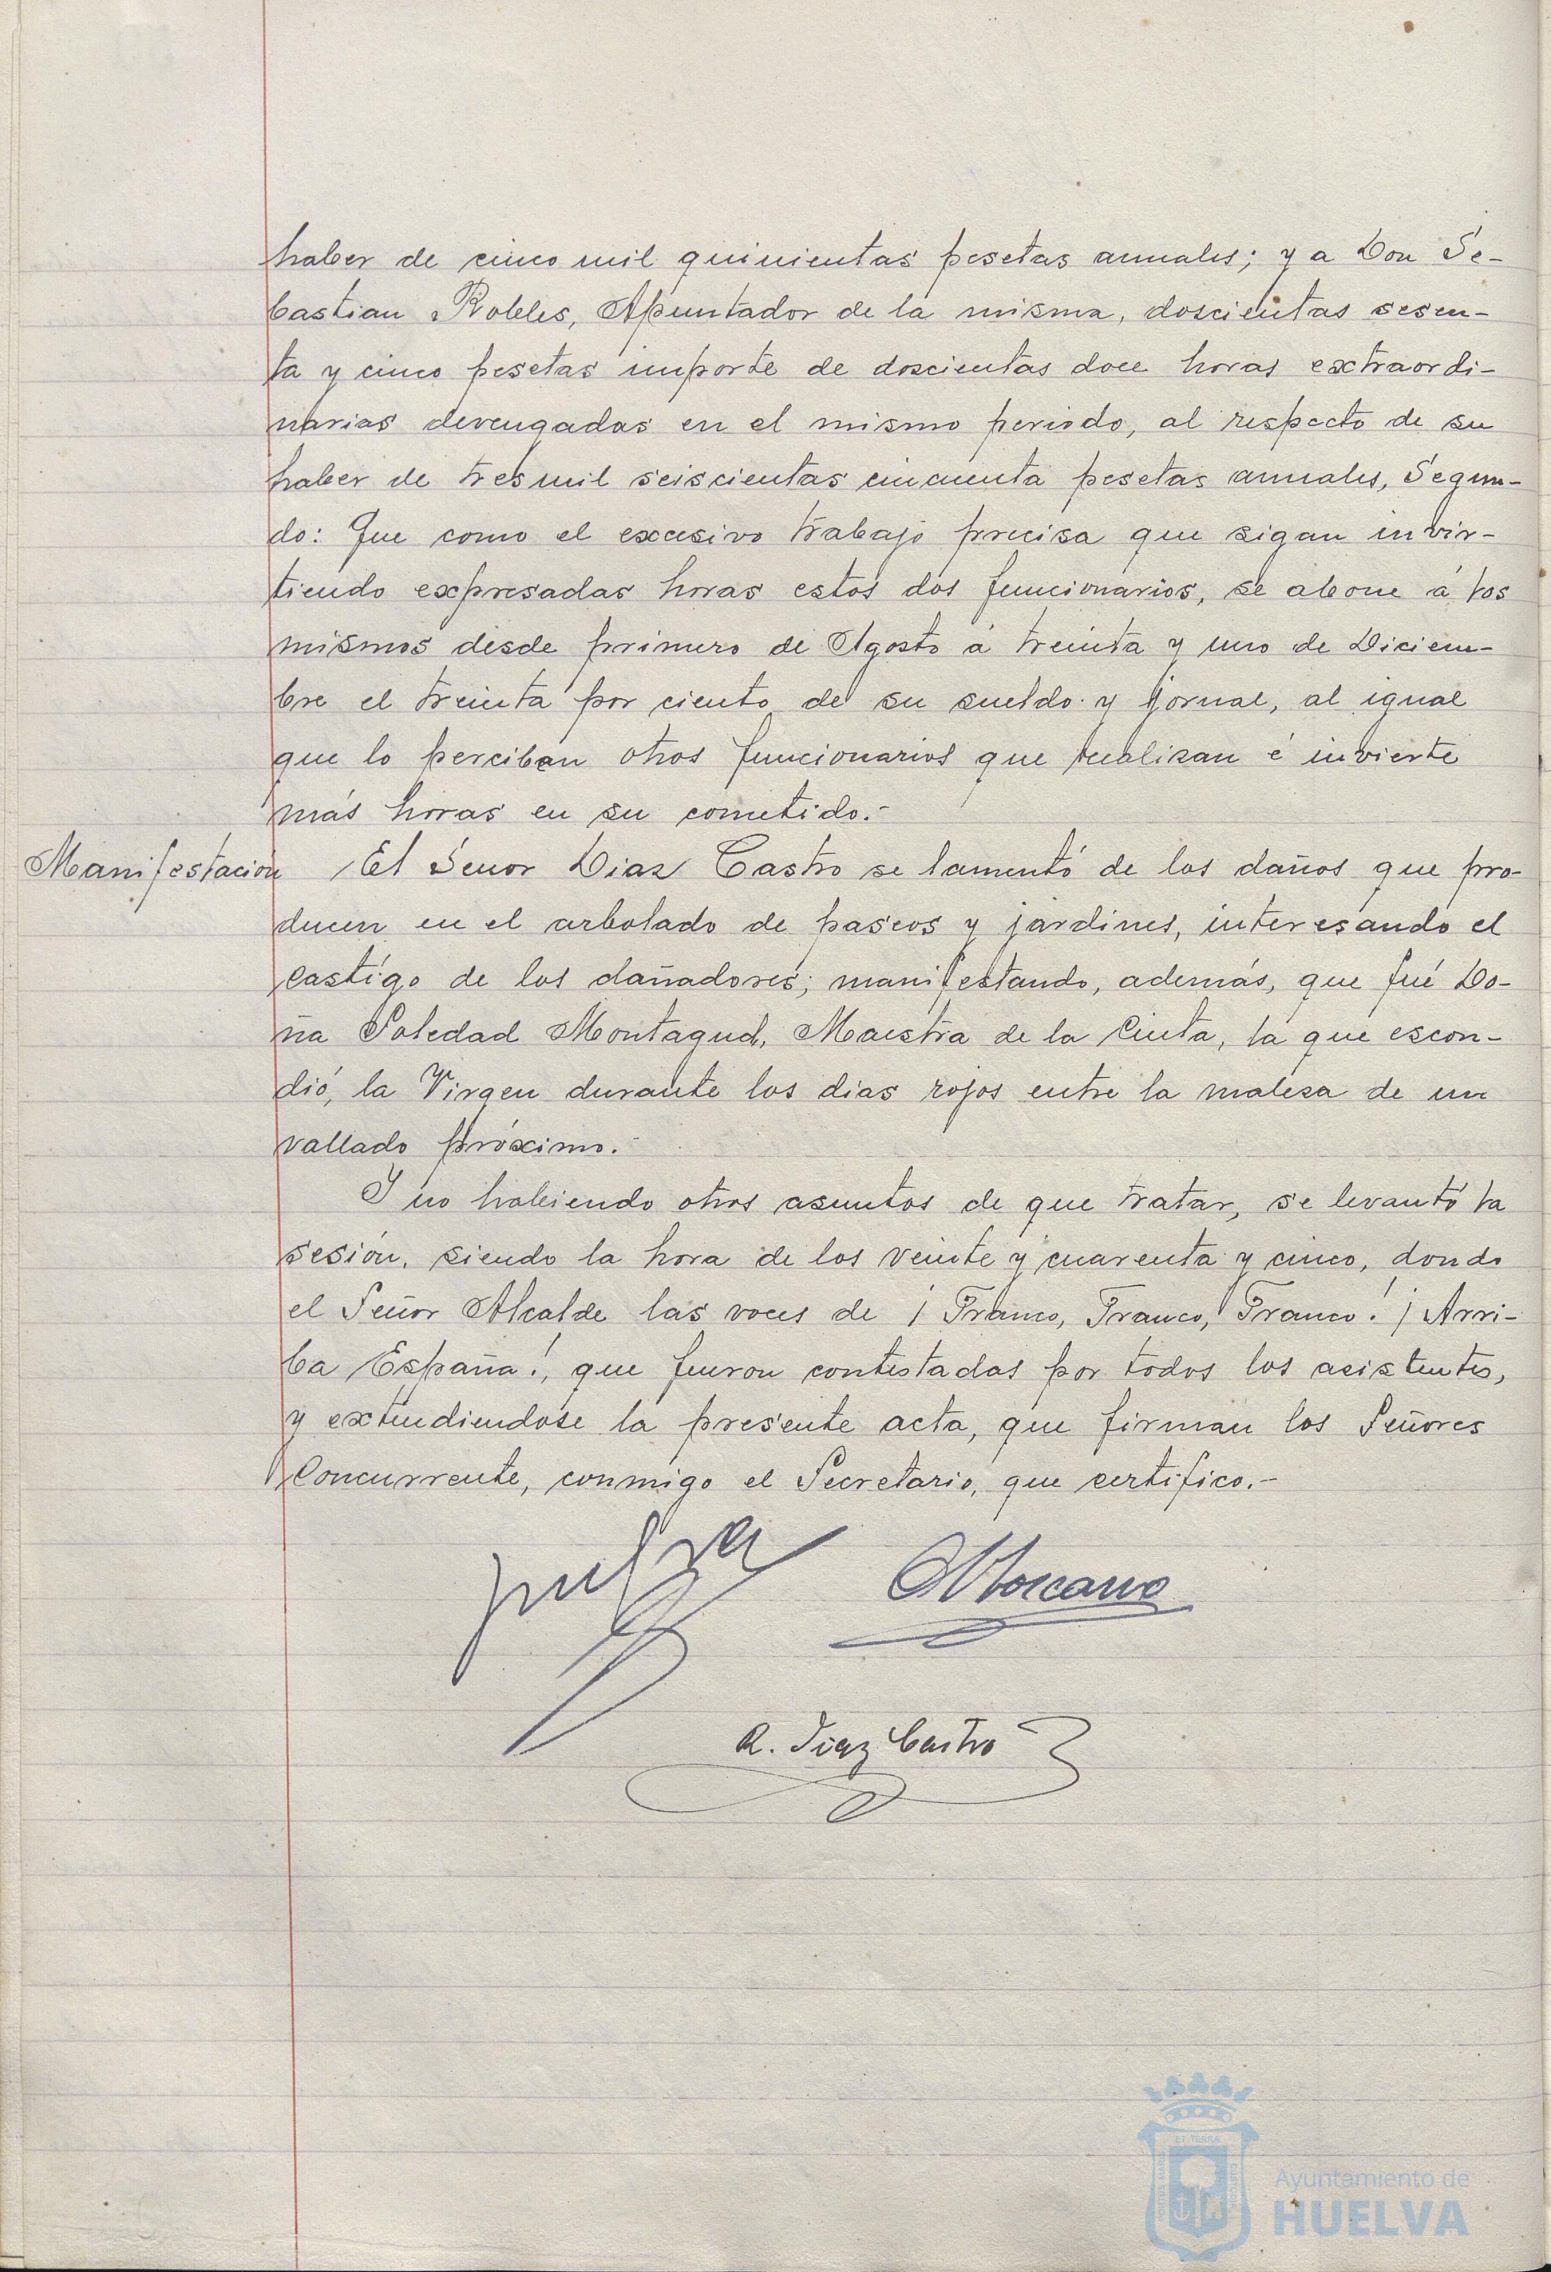 haber de cinco mil quinientas pesetas anuales; y a Don Se-
bastian Robles, Apuntador de la misma, doscientas sesen-
ta y cinco pesetas importe de doscientas doce horas extraordi-
narias devengadas en el mismo periodo, al respecto de su
haber de tres mil seiscientas cincuenta pesetas anuales, Segun-
do: Que como el excesivo trabajo precisa que sigan invir-
tiendo expresadas horas estos dos funcionarios, se abone á los
mismos desde primero de Agosto á treinta y uno de Diciem-
bre el treinta por ciento de su sueldo y jornal, al igual
que lo perciban otros funcionarios que realizan é invierte
más horas en su cometido.-
Manifestación El Señor Diaz Castro se lamentó de los daños que pro-
ducen en el arbolado de paseos y jardines, interesando el
castigo de los dañadores; manifestando, además, que fué Do-
ña Soledad Montagud, Maestra de la Cinta, la que escon-
dió, la Virgen durante los dias rojos entre la maleza de un
vallado próximo.-
Y no habiendo otros asuntos de que tratar, se levantó la
sesión, siendo la hora de los veinte y cuarenta y cinco, dondo
el Señor Alcalde las voces de ¡Franco, Franco, Franco! ¡Arri-
ba España!, que fueron contestadas por todos los asistentes,
y extendiendose la presente acta, que firman los Señores
Concurrente, conmigo el Secretario, que certifico.-
R. Diaz Castro
ET TERRAE
Ayuntamiento de
HUELVA